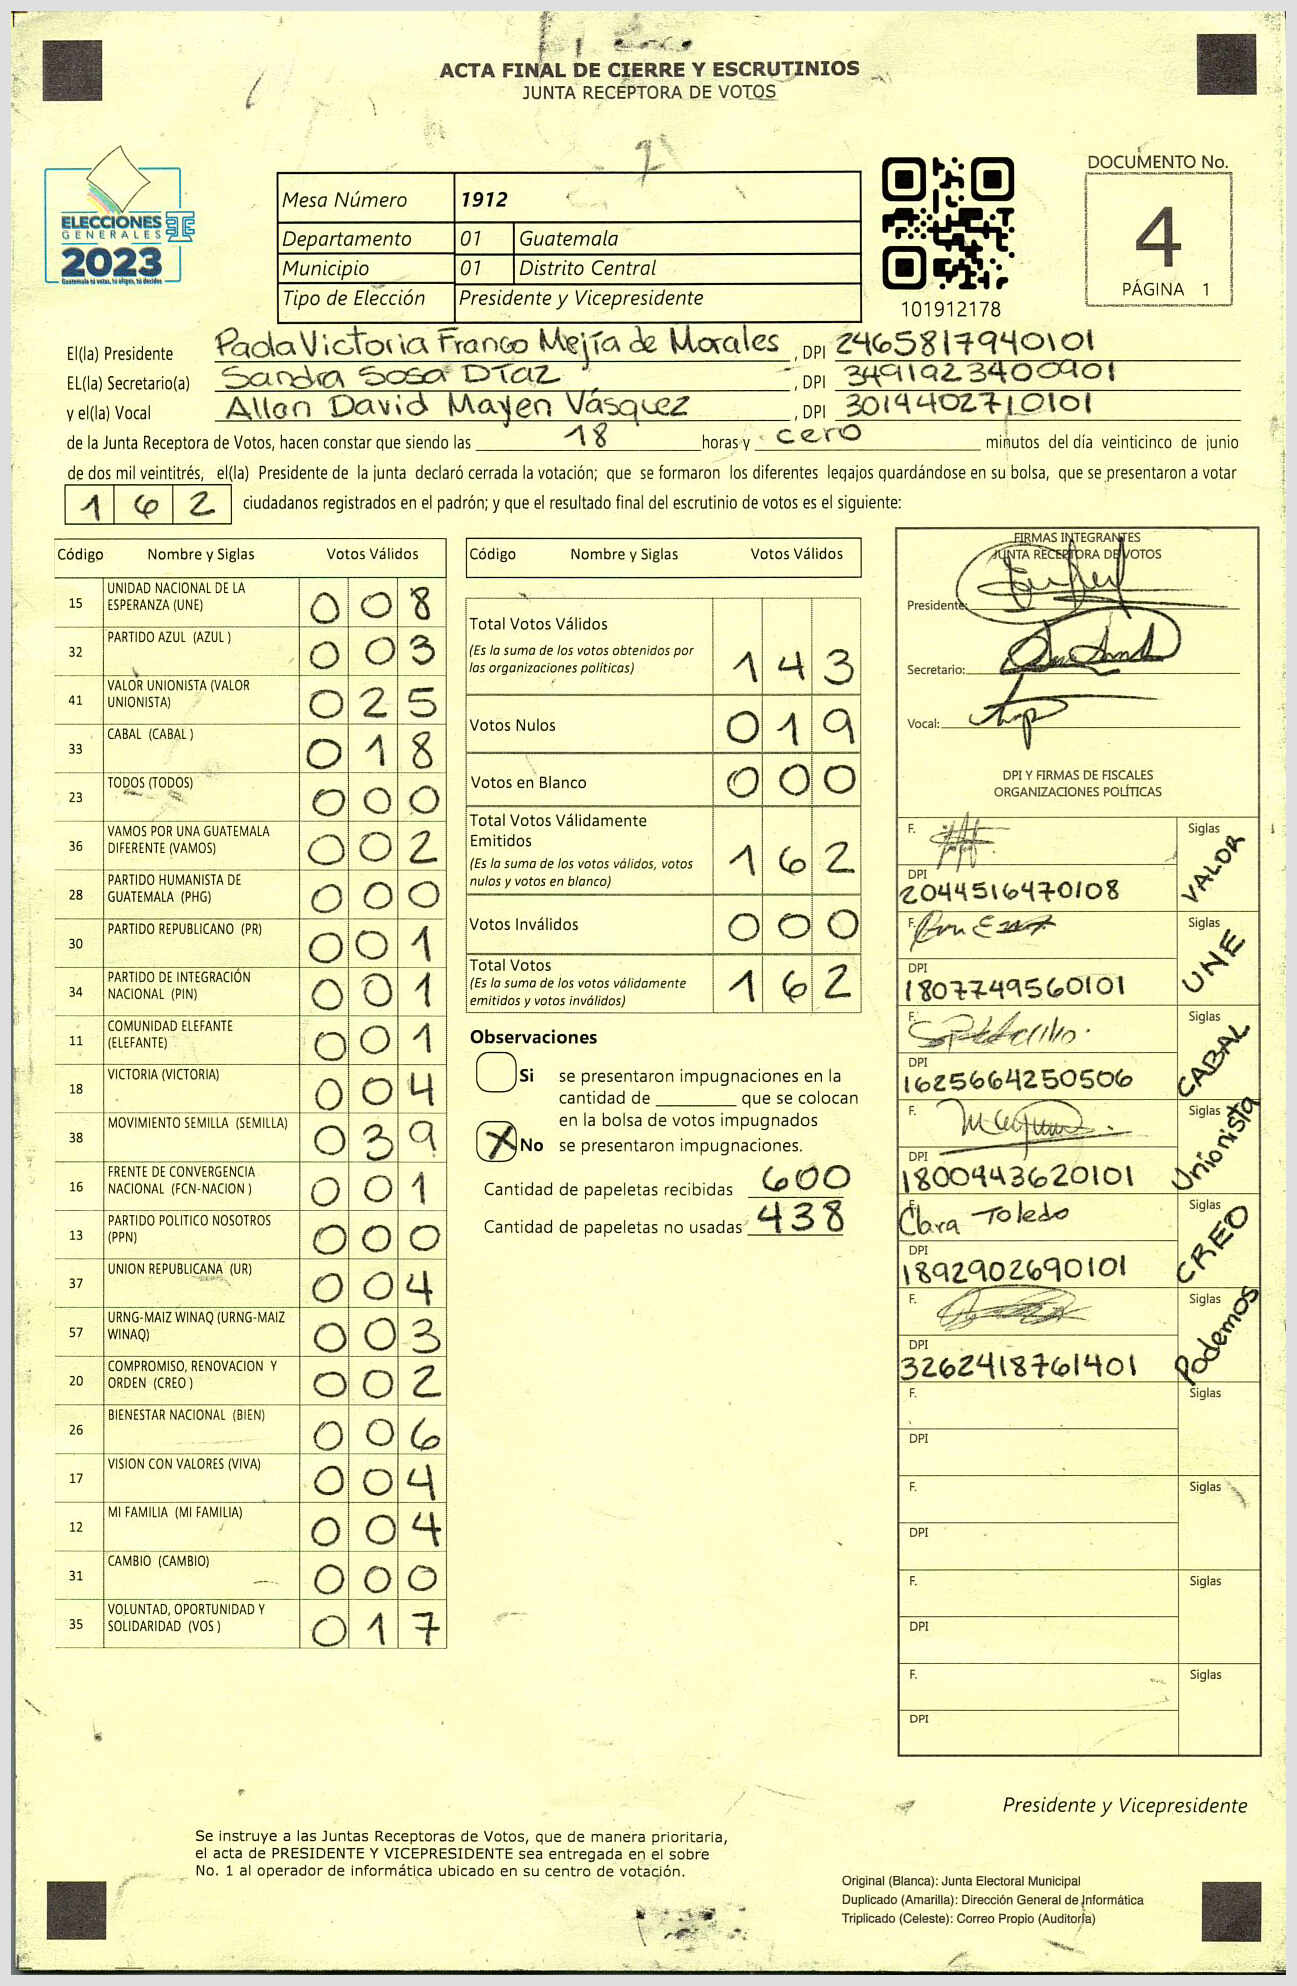 ACTA FINAL DE CIERRE Y ESCRUTINIOS
JUNTA RECEPTORA DE VOTOS
ELECCIONES
GENERALES
2023
Guatemala tú votas, tú eliges, tú decides
Mesa Número 1912
Departamento 01 Guatemala
Municipio 01 Distrito Central
Tipo de Elección Presidente y Vicepresidente
101912178
DOCUMENTO No.
4
PÁGINA 1
El(la) Presidente Paola Victoria Franco Mejía de Morales, DPI 2465817940101
EL(la) Secretario(a) Sandra Sosa Díaz, DPI 3491923400901
y el(la) Vocal Allan David Mayen Vásquez, DPI 3014402710101
de la Junta Receptora de Votos, hacen constar que siendo las 18 horas y cero minutos del día veinticinco de junio
de dos mil veintitrés, el(la) Presidente de la junta declaró cerrada la votación; que se formaron los diferentes legajos quardándose en su bolsa, que se presentaron a votar
162 ciudadanos registrados en el padrón; y que el resultado final del escrutinio de votos es el siguiente:
Código Nombre y Siglas Votos Válidos
15 UNIDAD NACIONAL DE LA ESPERANZA (UNE) 008
32 PARTIDO AZUL (AZUL ) 003
41 VALOR UNIONISTA (VALOR UNIONISTA) 025
33 CABAL (CABAL ) 018
23 TODOS (TODOS) 000
36 VAMOS POR UNA GUATEMALA DIFERENTE (VAMOS) 002
28 PARTIDO HUMANISTA DE GUATEMALA (PHG) 000
30 PARTIDO REPUBLICANO (PR) 001
34 PARTIDO DE INTEGRACIÓN NACIONAL (PIN) 001
11 COMUNIDAD ELEFANTE (ELEFANTE) 001
18 VICTORIA (VICTORIA) 004
38 MOVIMIENTO SEMILLA (SEMILLA) 039
16 FRENTE DE CONVERGENCIA NACIONAL (FCN-NACION ) 001
13 PARTIDO POLITICO NOSOTROS (PPN) 000
37 UNION REPUBLICANA (UR) 004
57 URNG-MAIZ WINAQ (URNG-MAIZ WINAQ) 003
20 COMPROMISO, RENOVACION Y ORDEN (CREO ) 002
26 BIENESTAR NACIONAL (BIEN) 006
17 VISION CON VALORES (VIVA) 004
12 MI FAMILIA (MI FAMILIA) 004
31 CAMBIO (CAMBIO) 000
35 VOLUNTAD, OPORTUNIDAD Y SOLIDARIDAD (VOS ) 017
Código Nombre y Siglas Votos Válidos
Total Votos Válidos 143
(Es la suma de los votos obtenidos por
las organizaciones políticas)
Votos Nulos 019
Votos en Blanco 000
Total Votos Válidamente
Emitidos 162
(Es la suma de los votos válidos, votos
nulos y votos en blanco)
Votos Inválidos 000
Total Votos 162
(Es la suma de los votos válidamente
emitidos y votos inválidos)
Observaciones
Si se presentaron impugnaciones en la
cantidad de ________ que se colocan
en la bolsa de votos impugnados
X No se presentaron impugnaciones.
Cantidad de papeletas recibidas 600
Cantidad de papeletas no usadas 438
FIRMAS INTEGRANTES
JUNTA RECEPTORA DE VOTOS
Presidente:
Secretario:
Vocal:
DPI Y FIRMAS DE FISCALES
ORGANIZACIONES POLÍTICAS
F. Siglas VALOR
DPI 2044516470108
F. Siglas UNE
DPI 1807749560101
F. Siglas CABAL
DPI 1625664250506
F. Siglas Unionista
DPI 1800943620101
F. Clara Toledo Siglas CREO
DPI 1892902690101
F. Siglas Podemos
DPI 3262418761401
F. Siglas
DPI
F. Siglas
DPI
F. Siglas
DPI
F. Siglas
DPI
Presidente y Vicepresidente
Se instruye a las Juntas Receptoras de Votos, que de manera prioritaria,
el acta de PRESIDENTE Y VICEPRESIDENTE sea entregada en el sobre
No. 1 al operador de informática ubicado en su centro de votación.
Original (Blanca): Junta Electoral Municipal
Duplicado (Amarilla): Dirección General de Informática
Triplicado (Celeste): Correo Propio (Auditoría)